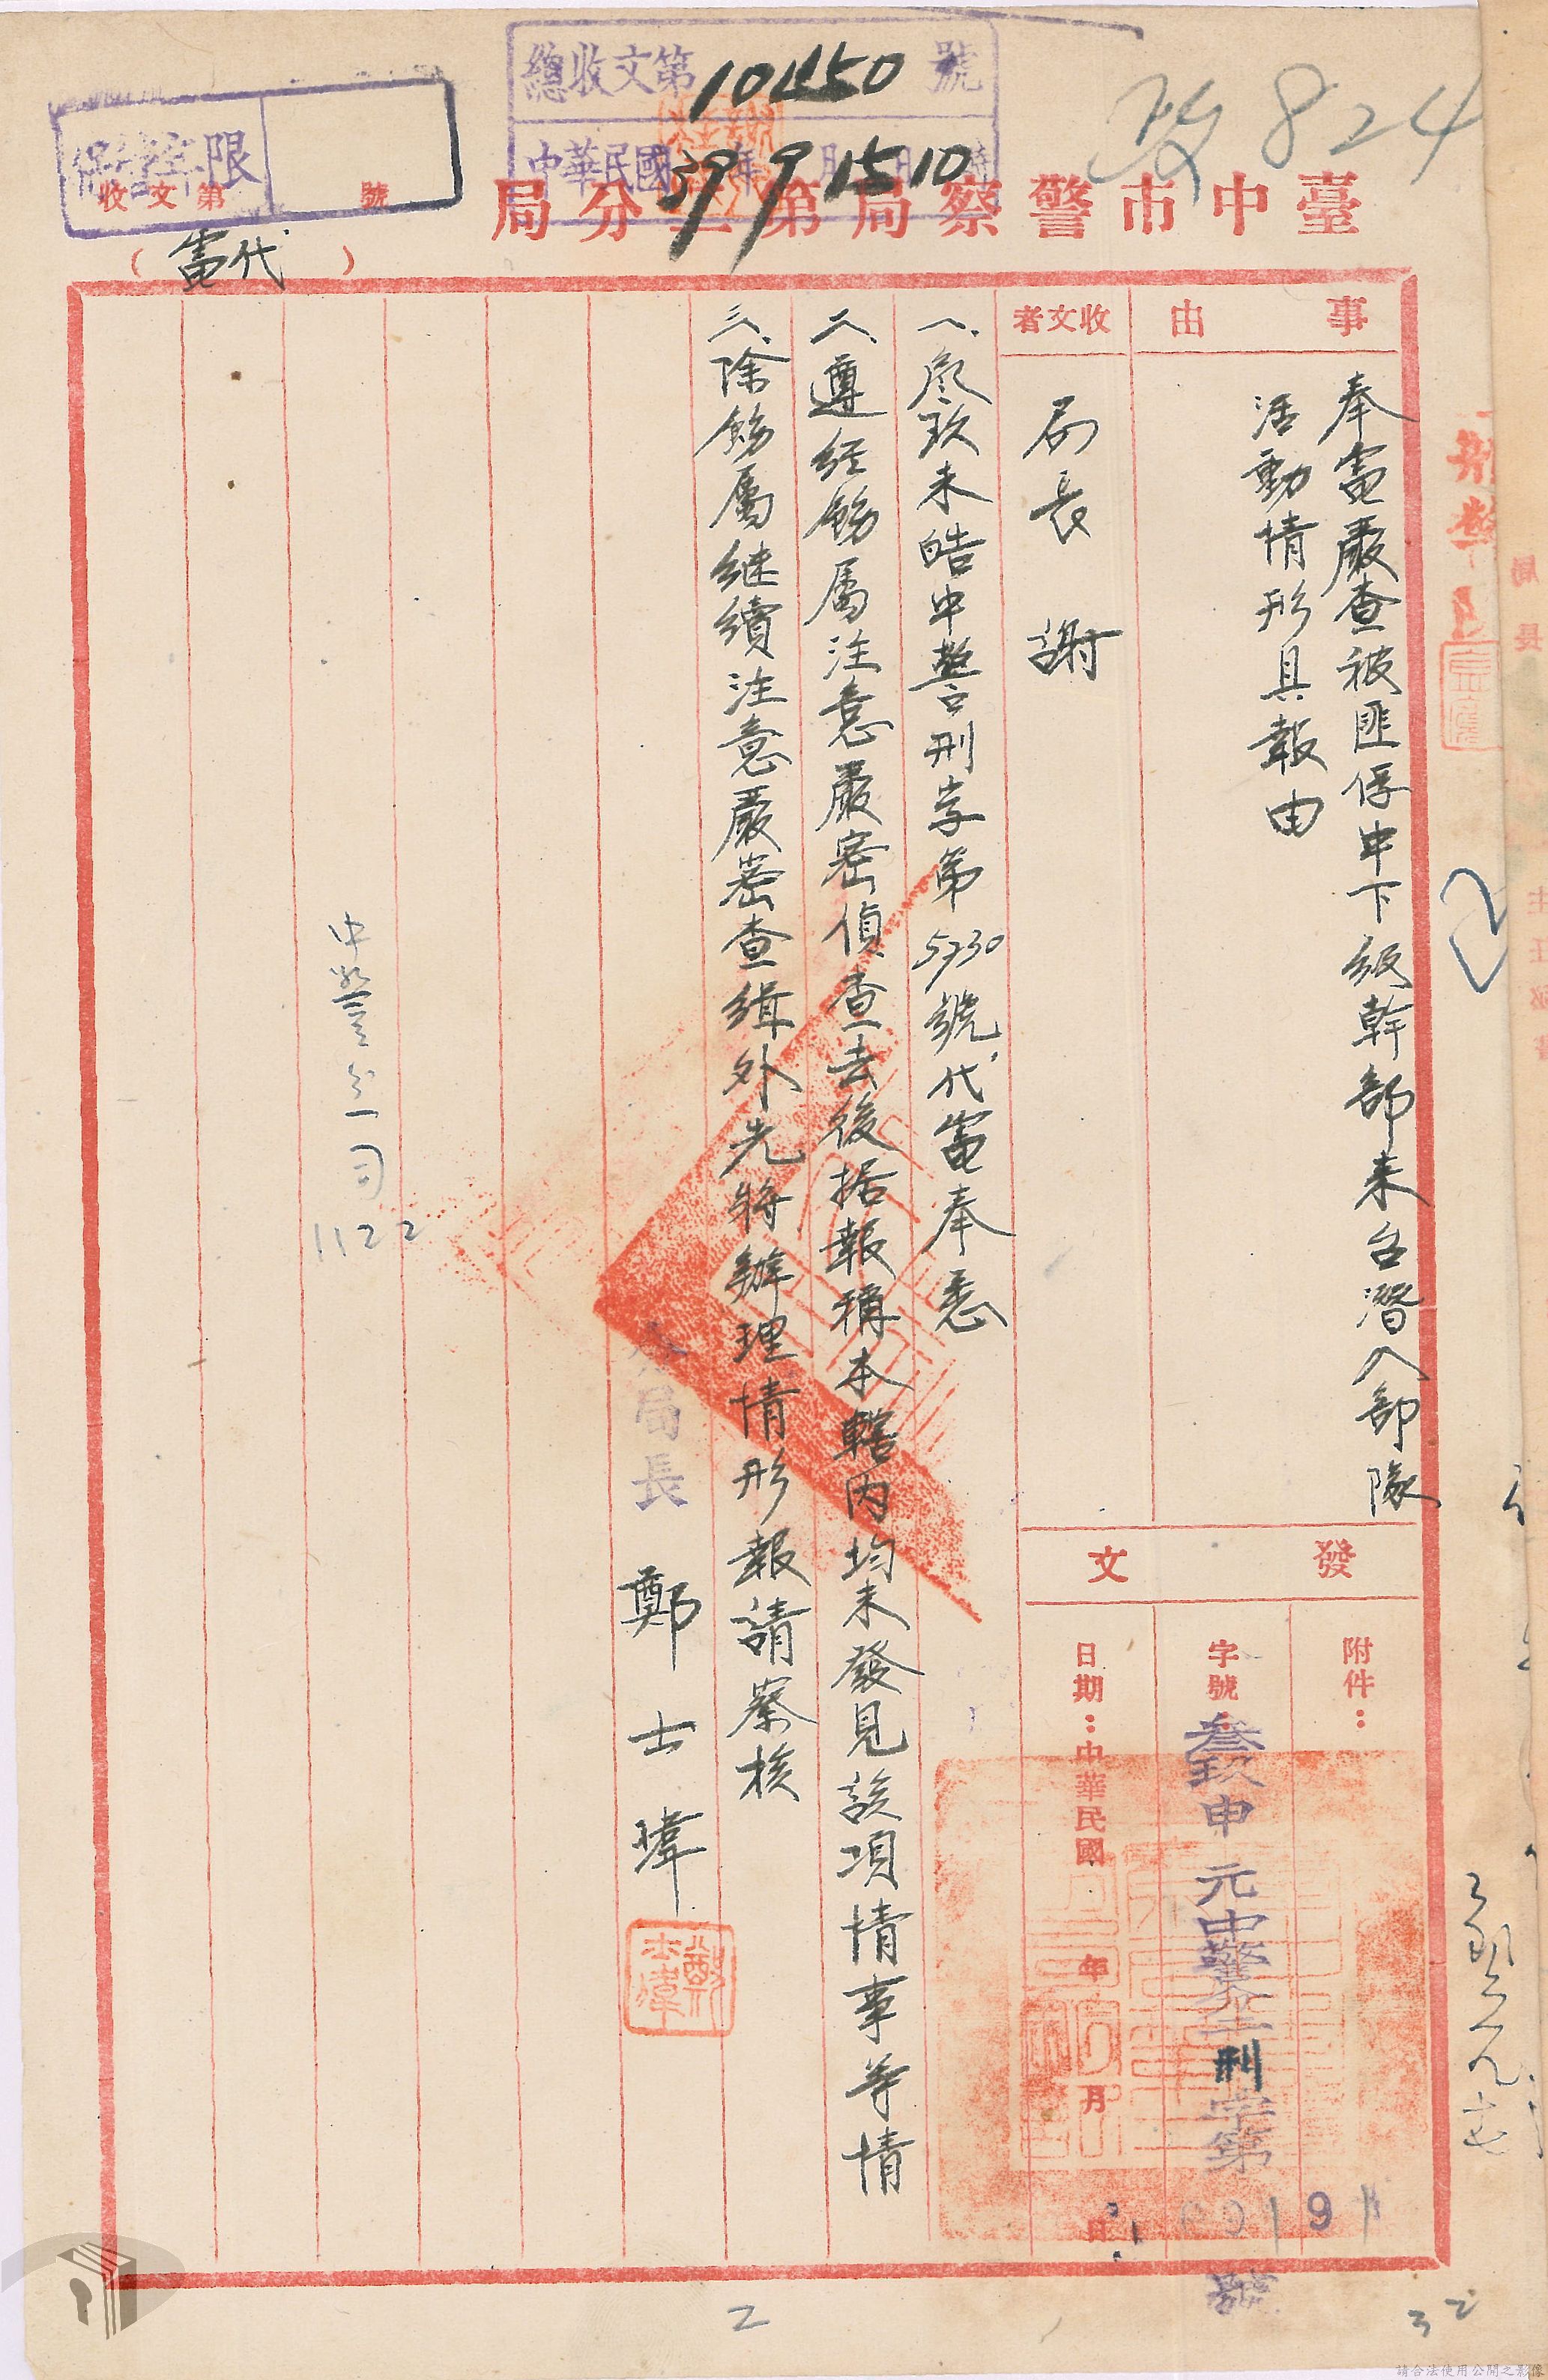 總收文第10450號
中華民國39年9月15日10時
改824
保管年限
收文第　號
臺中市警察局第二分局
（代電）
事由
奉電嚴查被匪俘中下級幹部來台潛入部隊
活動情形具報由
收文者
局長　謝
發文
附件：
字號 叁玖申元中警分二刑字第　號
日期：中華民國　年　月　日
一、叁玖未皓中警刑字第5730號代電奉悉
二、遵經飭屬注意嚴密偵查去後据報稱本轄內均未發見該項情事等情
三、除飭屬継續注意嚴密查緝外先將辦理情形報請察核
分局長　鄭士瑋
鄭士瑋
1122
2
32
請合法使用公開之影像